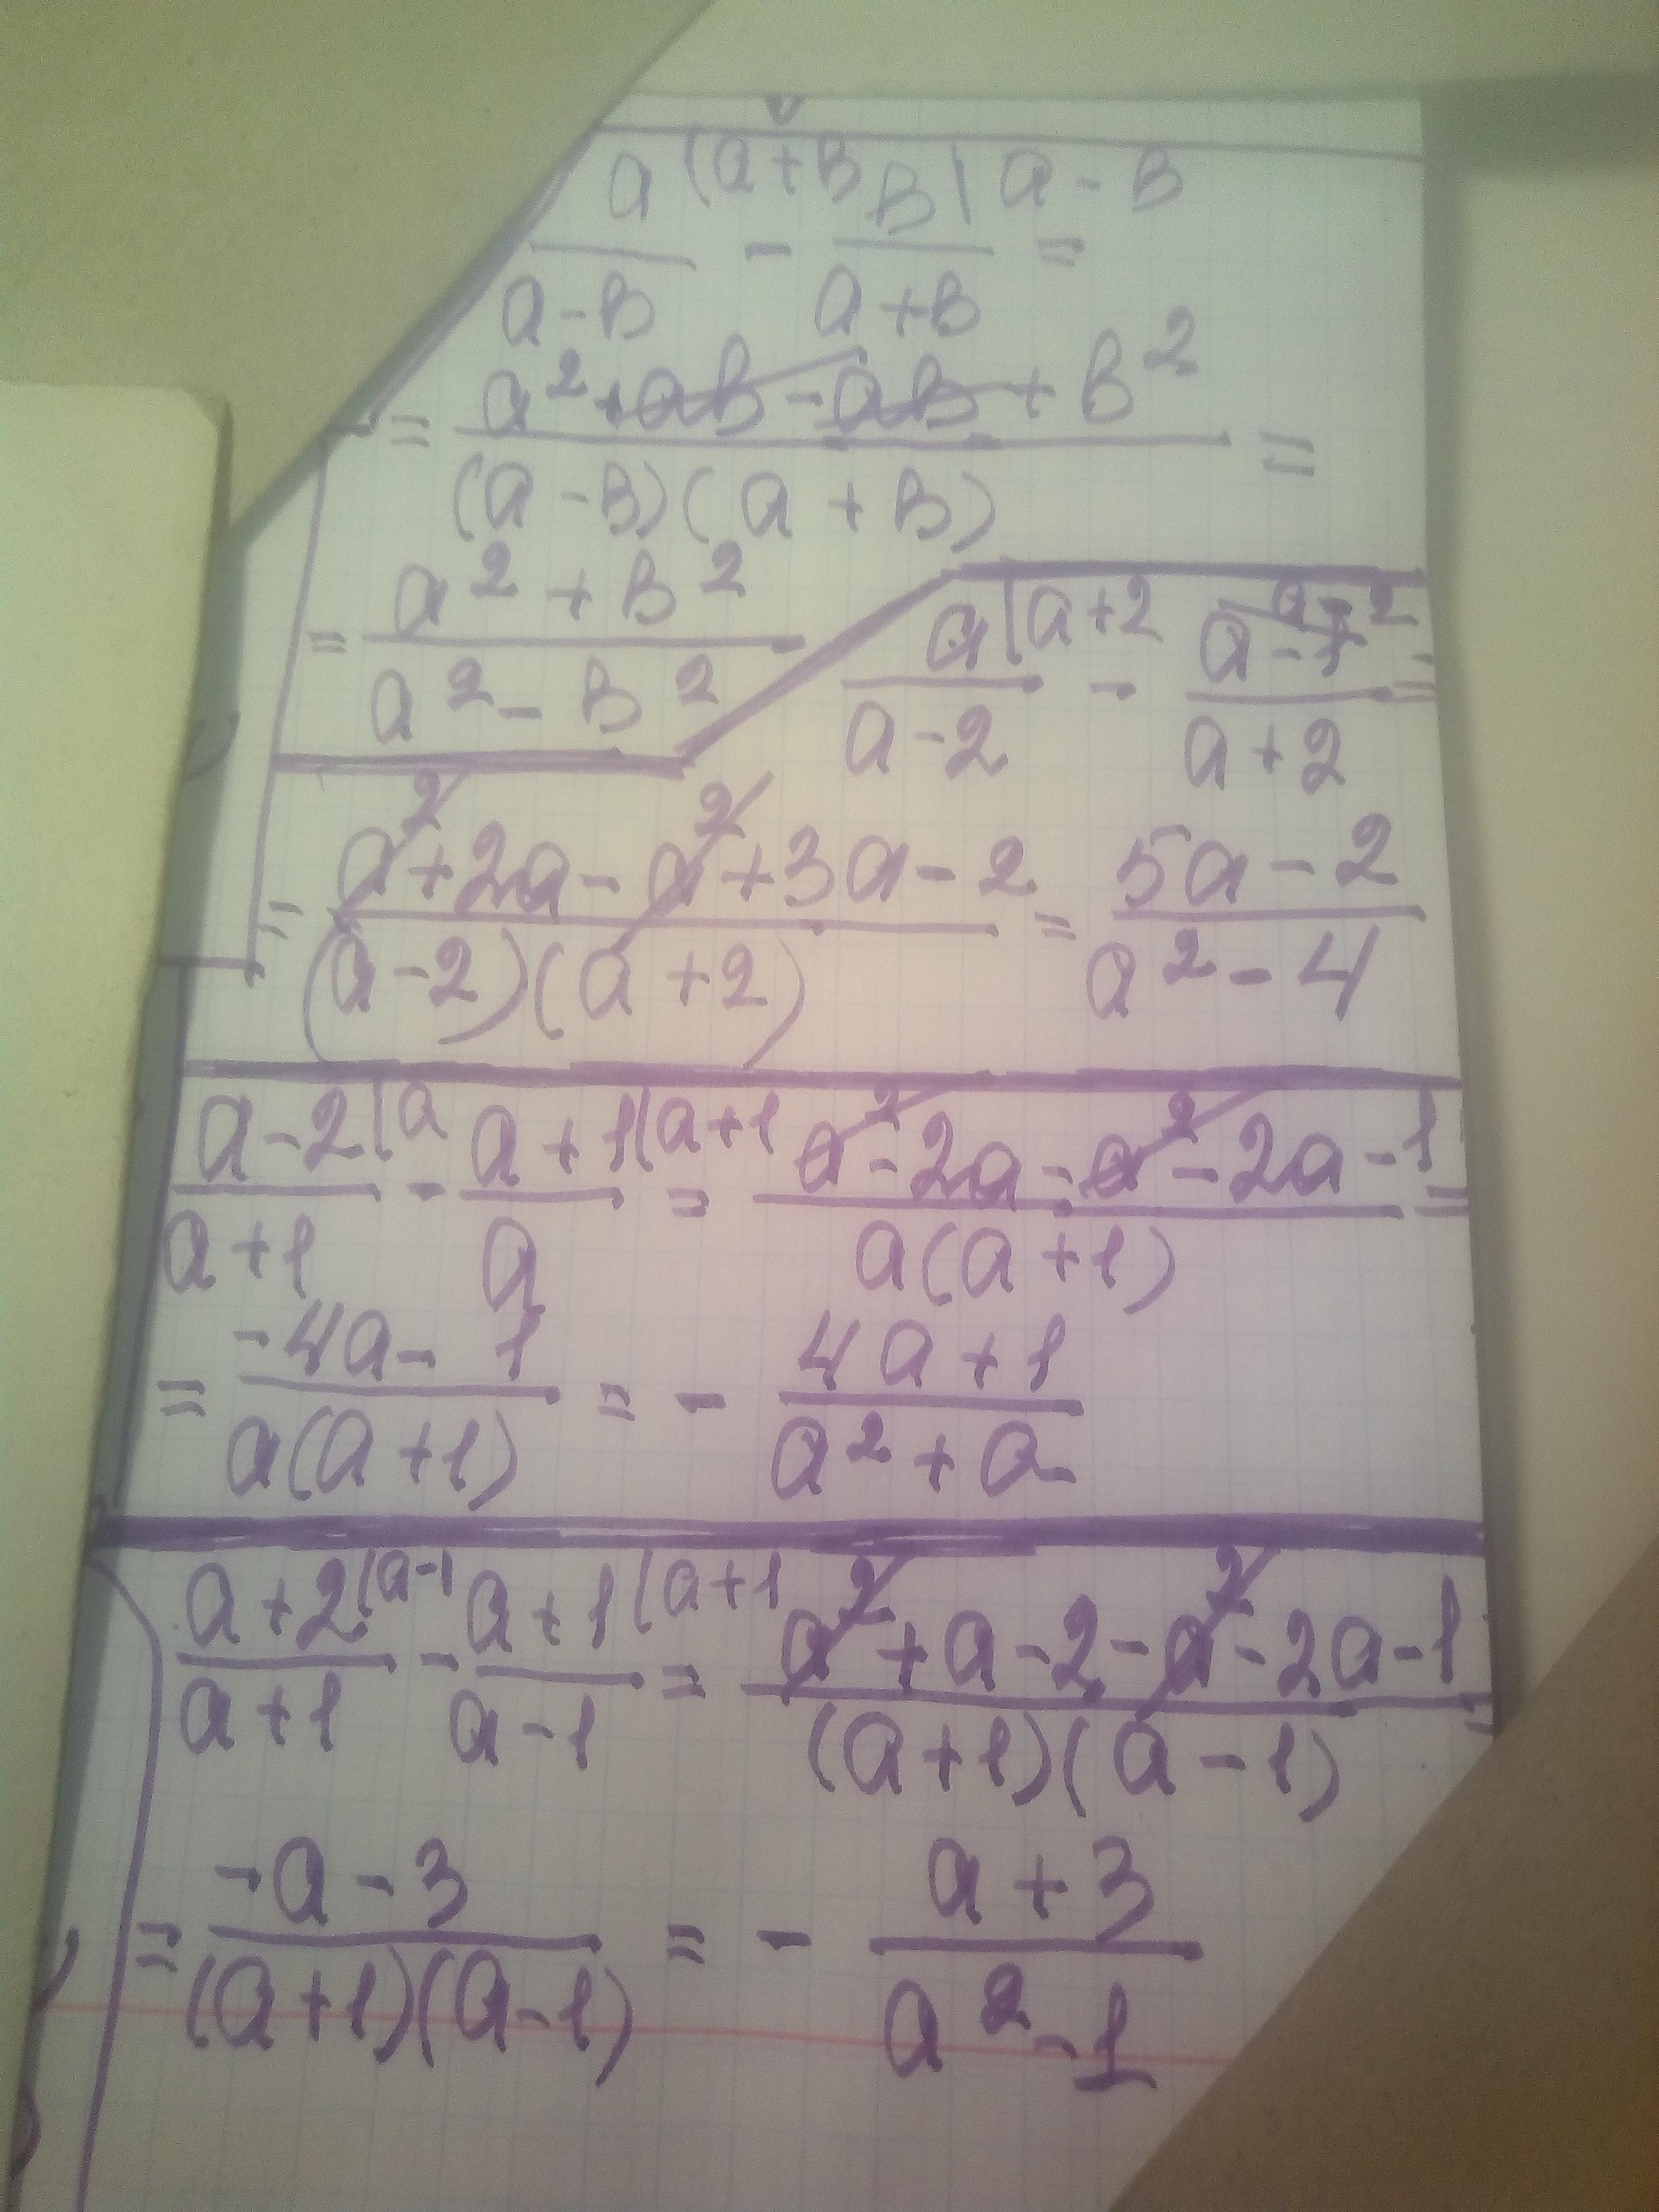 a(a+в в(a-в
— - — =
a-в a+в
= a²+aв-aв+в² / (a-в)(a+в) =
= a²+в² / a²-в²
a(a+2 / a-2 - a-2 a-1 / a+2 =
= a²+2a-a²+3a-2 / (a-2)(a+2) = 5a-2 / a²-4
a-2(a / a+1 - a+1(a+1 / a = a²-2a-a²-2a-1 / a(a+1) =
= -4a-1 / a(a+1) = - 4a+1 / a²+a
a+2(a-1 / a+1 - a+1(a+1 / a-1 = a²+a-2-a²-2a-1 / (a+1)(a-1) =
= -a-3 / (a+1)(a-1) = - a+3 / a²-1